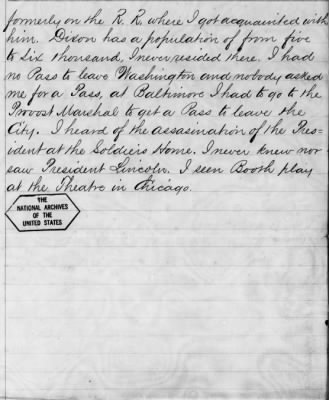 formerly on the R. R. where I got acquainted with
him. Dixon has a population of from five
to Six thousand, I never resided there. I had
no Pass to leave Washington and nobody asked
me for a Pass, at Baltimore I had to go to the
Provost Marshal to get a Pass to leave the
City. I heard of the assasination of the Pres-
ident at the Soldiers Home. I never knew nor
saw President Lincoln. I seen Booth play
at the Theatre in Chicago.
THE
NATIONAL ARCHIVES
OF THE
UNITED STATES